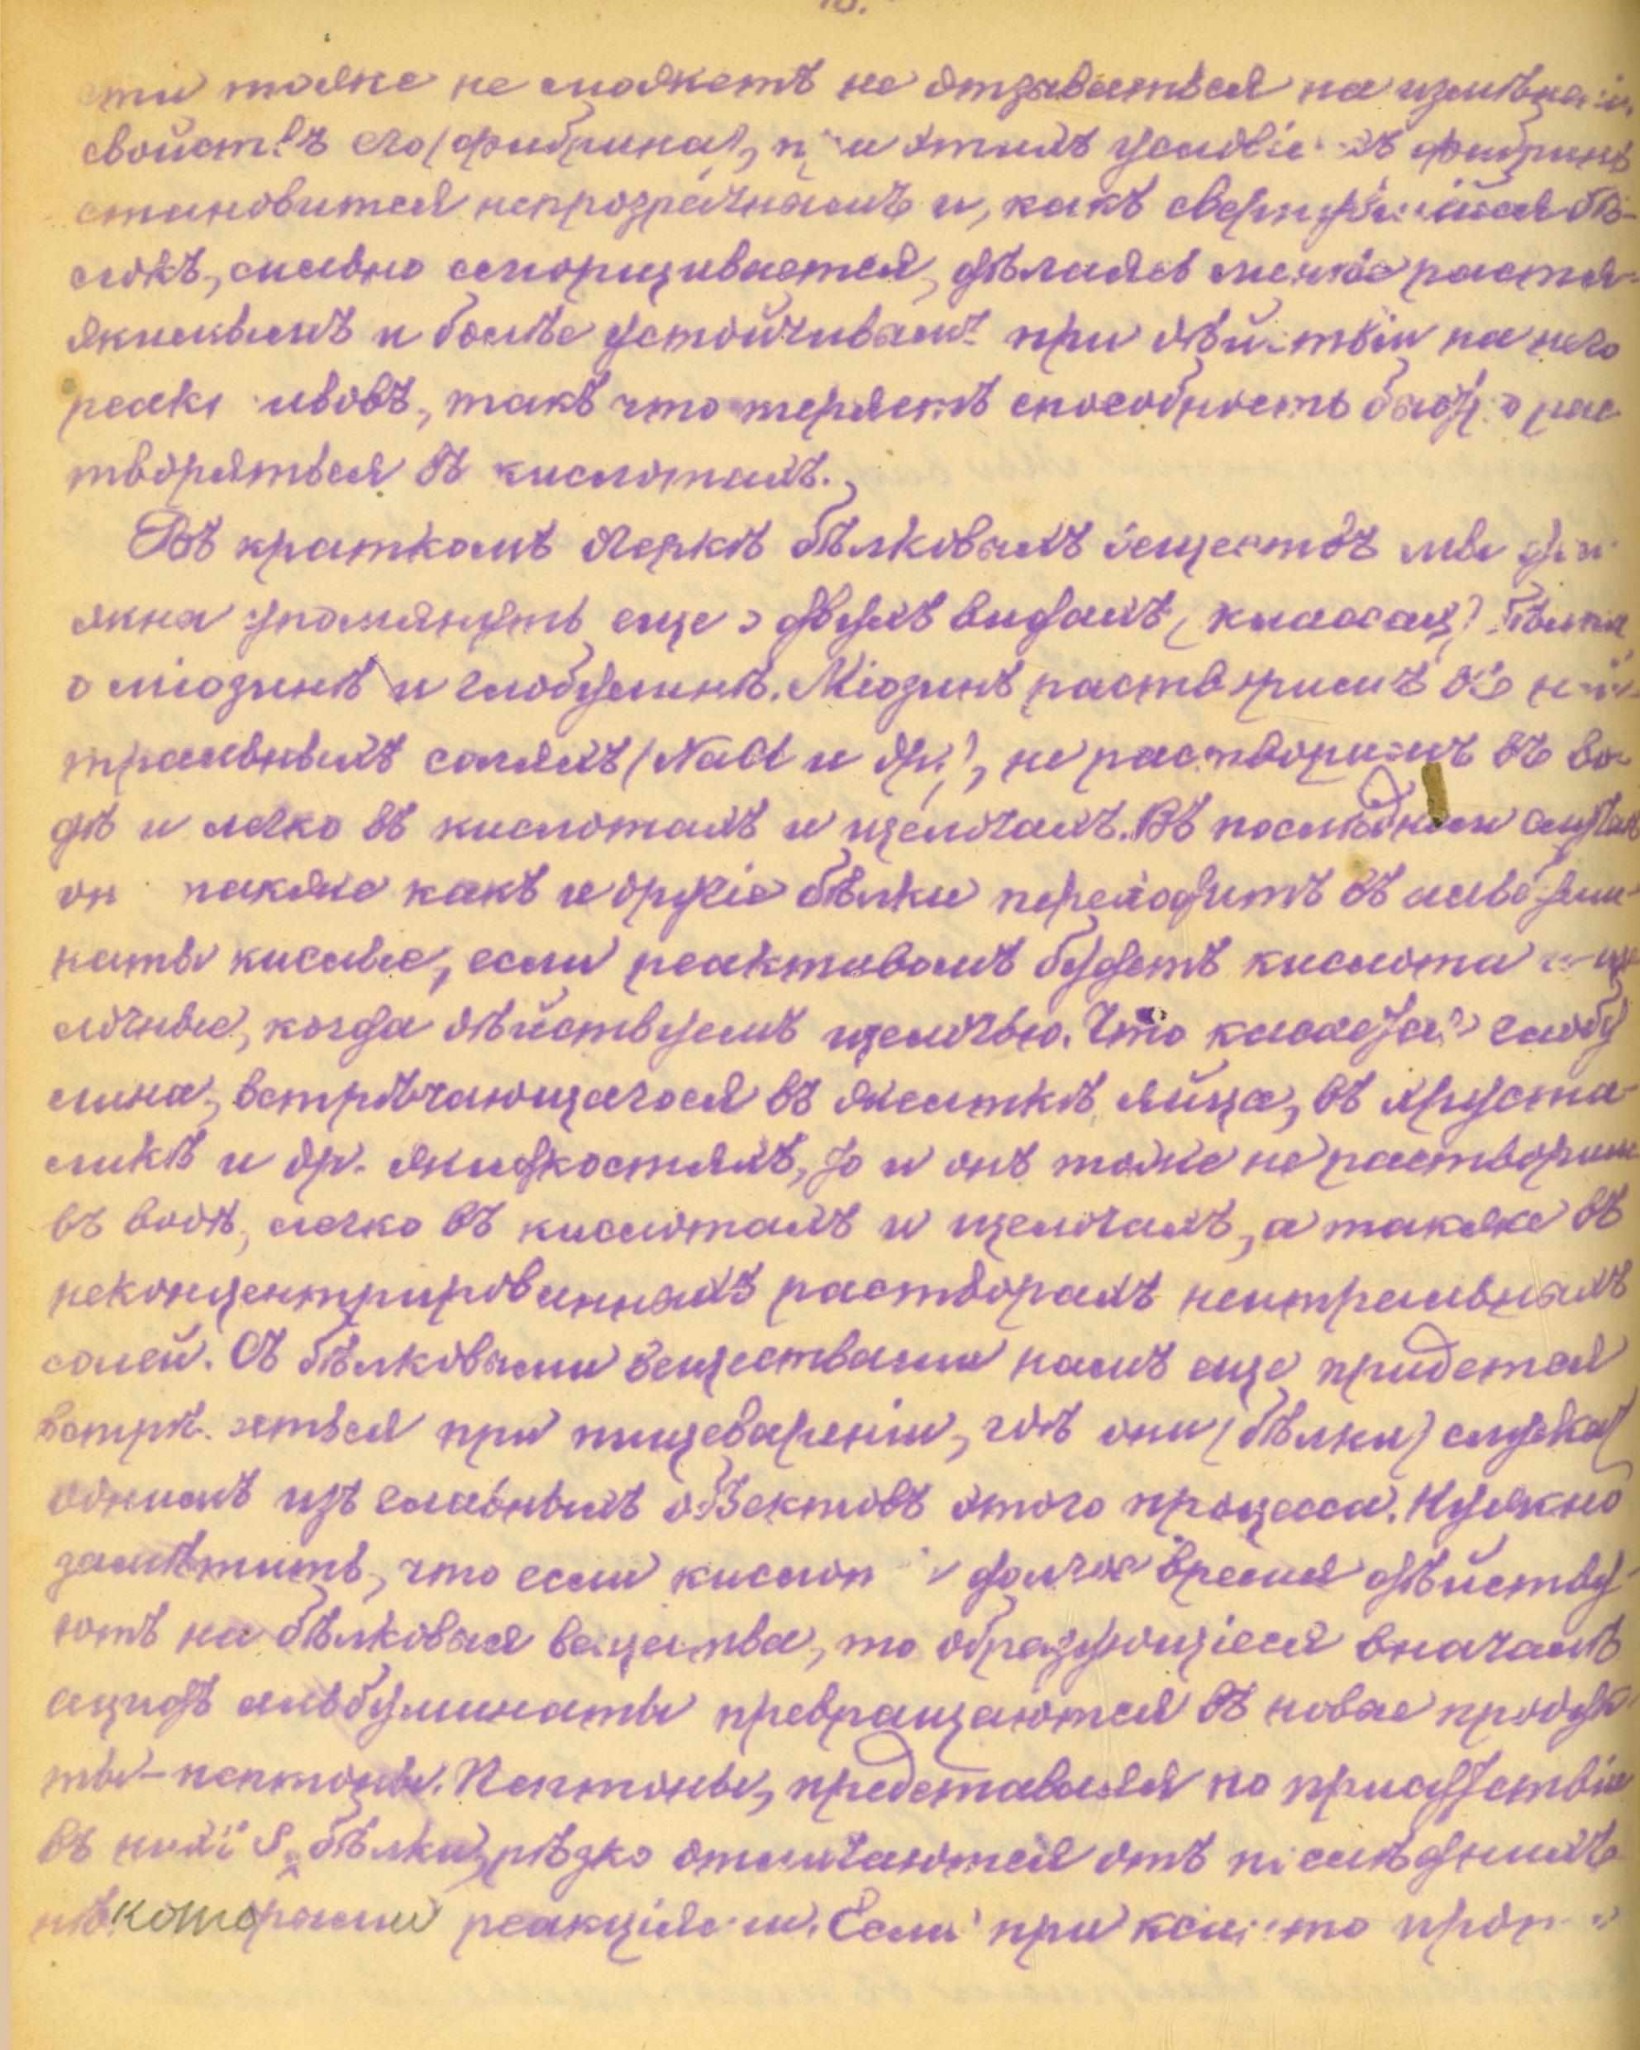 сти тоже не можетъ не отзываться на измѣненіи
свойствъ его (фибрина), при этихъ условіяхъ фибринъ
становится непрозрачнымъ и, какъ свернувшійся бѣ-
локъ, сильно сморщивается, дѣлаясь менѣе растя-
жимымъ и болѣе устойчивымъ при дѣйствіи на него
реактивовъ, такъ что теряетъ способность быстро рас
творяться въ кислотахъ.
Въ краткомъ очеркѣ бѣлковыхъ веществъ мы дол
жны упомянуть еще о двухъ видахъ (классахъ) бѣлка
о міозинѣ и глобулинѣ. Міозинъ растворимъ въ ней
тральныхъ соляхъ (NaCl и др.), не растворимъ въ во-
дѣ и легко въ кислотахъ и щелочахъ. Въ послѣднем случаѣ
он также какъ и другіе бѣлки переходитъ въ альбуми-
наты кислые, если реактивомъ будетъ кислота и ще
лочные, когда дѣйствуемъ щелочью. Что касается глобу
лина, встрѣчающагося въ желткѣ яйца, въ хруста-
ликѣ и др. жидкостяхъ, то и онъ тоже не растворим
въ водѣ, легко въ кислотахъ и щелочахъ, а также въ
неконцентрированныхъ растворахъ нейтральныхъ
солей. Съ бѣлковыми веществами намъ еще придется
встрѣчаться при пищевареніи, гдѣ они (бѣлки) служатъ
однимъ изъ главныхъ объектовъ этого процесса. Нужно
замѣтить, что если кислоты долгое время дѣйству-
ютъ на бѣлковыя вещества, то образующіеся вначалѣ
ацидъ альбуминаты превращаются въ новые продук
ты - пептоны. Пептоны, представляя по присутствію
въ нихъ S, бѣлки, рѣзко отличаются отъ послѣднихъ
нѣкоторыми реакціями. Если при